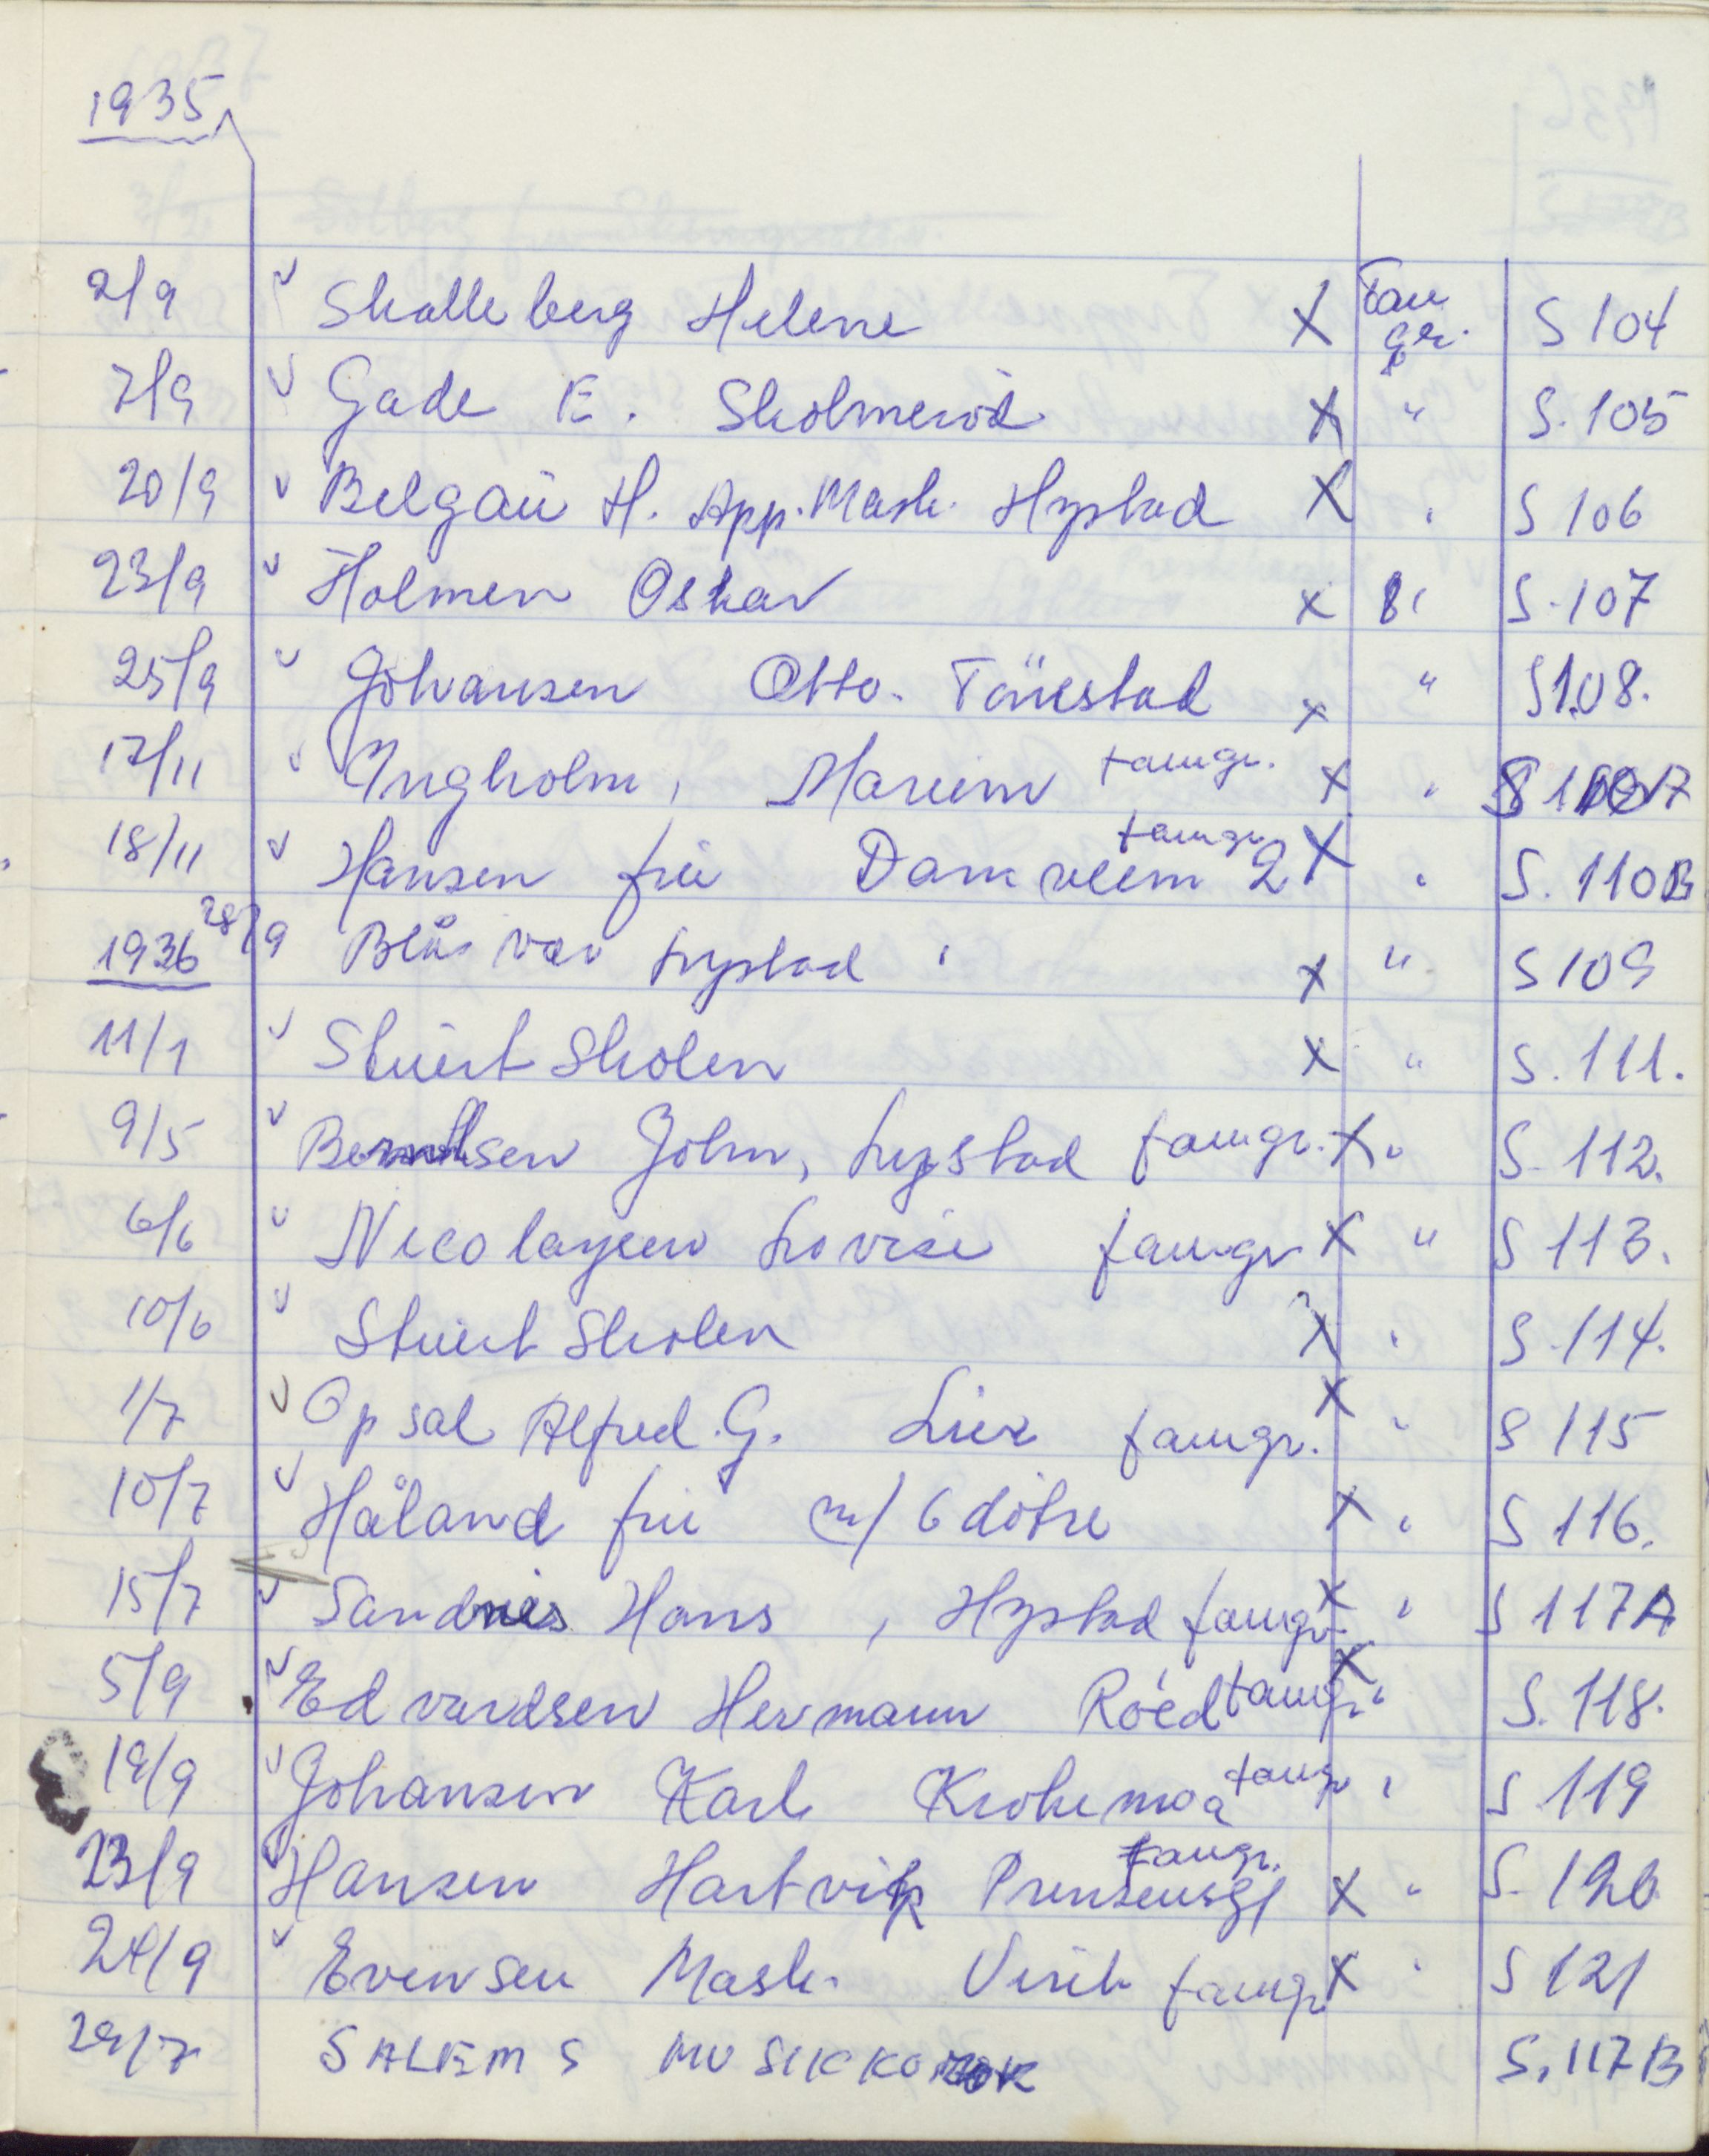 1935
2/9 v Skalleberg Helene X Fam gr. S 104
7/9 v Gade E. Skolmeröd X " S. 105
20/9 v Belgaŭ H. App. Mask. Hystad X " S 106
23/9 v Holmen Oskar x " S. 107
25/9 v Johansen Otto. x " S 108.
17/11 v Yngholm, famgr. x " S
18/11 v Hansen frŭ famgr 2 X " S. 110B
1936 28/9 Blås var Lystad " x " S 109
11/1 v Skolen x " S. 111.
9/5 v Berntsen John, Lystad famgr. x " S. 112.
6/6 v Nicolaysen Lovise famgr x " S 113.
10/6 v Skolen x " S. 114.
1/7 v Opsal Alfred. G. Lier famgr. x " S 115
10/7 v Håland frŭ m/ 6 dötre x " S 116.
15/7 v Sandnes Hans, Hystad famgr. x " S 117A
5/9 v Edvardsen Hermann Röed famgr x " S. 118.
19/9 v Johansen Karl Krokemoa famgr " S. 119
23/9 v Hansen Hartvik Prinsensgt famgr. x " S. 120
24/9 v Evensen Mask. famgr x " S 121
29/7 SALEMS MUSIKKOR S. 117B